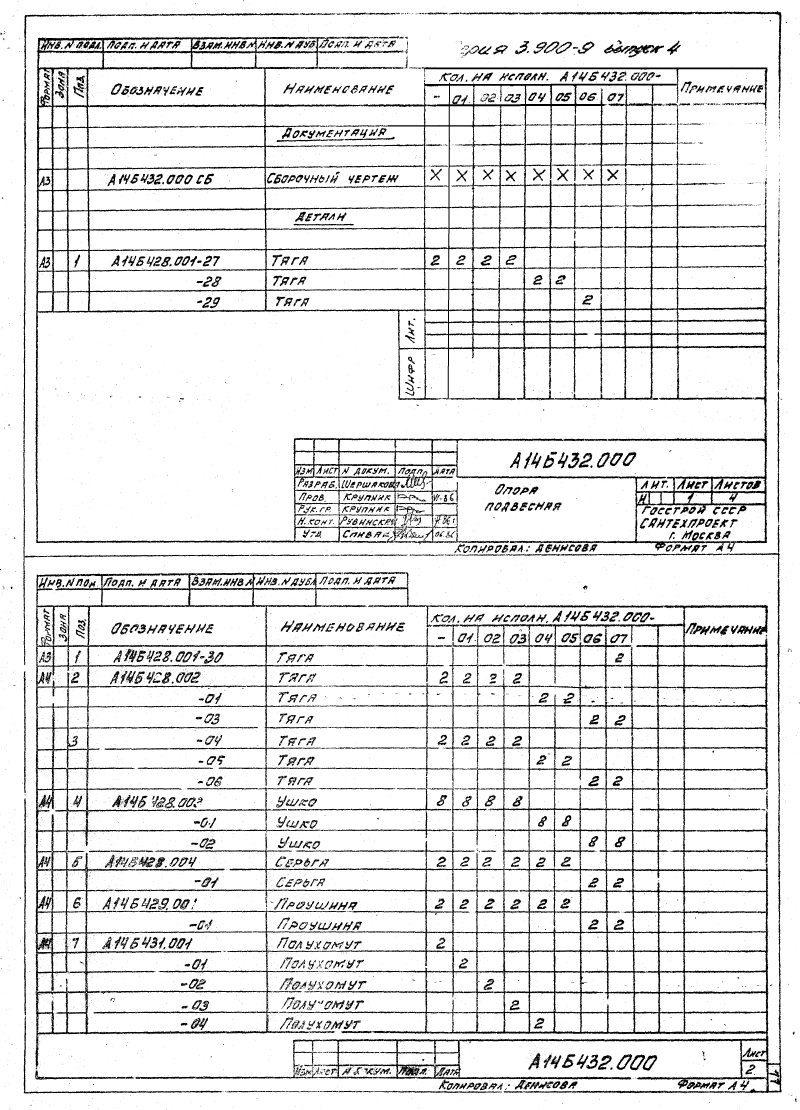 Инв. N подл. Подп. и дата Взам. инв. N Инв. N дуб. Подп. и дата
3.900-9 выпуск 4
Формат Зона Поз. Обозначение Наименование Кол. на исполн. А14Б432.000- Примечание
- 01 02 03 04 05 06 07
Документация
А3 А14Б432.000 СБ Сборочный чертеж X X X X X X X X
Детали
А3 1 А14Б428.001-27 Тяга 2 2 2 2
-28 Тяга 2 2
-29 Тяга 2
Лит.
Шифр
А14Б432.000
Изм Лист N докум. Подп. Дата
Разраб. Шершакова
Пров. Крупник VI-86
Рук. гр. Крупник
Н. конт. Рувинская
Утв.
Опора подвесная
Лит. Лист Листов
И 1 4
Госстрой СССР
Сантехпроект
г. Москва
Копировал: Денисова Формат А4
Инв. N под. Подп. и дата Взам. инв. N Инв. N дубл. Подп. и дата
Формат Зона Поз. Обозначение Наименование Кол. на исполн. А14Б432.000- Примечание
- 01 02 03 04 05 06 07
А3 1 А14Б428.001-30 Тяга 2
А4 2 А14Б428.002 Тяга 2 2 2 2
-01 Тяга 2 2
-03 Тяга 2 2
3 -04 Тяга 2 2 2 2
-05 Тяга 2 2
-06 Тяга 2 2
А4 4 А14Б428.003 Ушко 8 8 8 8
-01 Ушко 8 8
-02 Ушко 8 8
А4 5 А14Б428.004 Серьга 2 2 2 2 2 2
-01 Серьга 2 2
А4 6 А14Б429.001 Проушина 2 2 2 2 2 2
-01 Проушина 2 2
А4 7 А14Б431.001 Полухомут 2
-01 Полухомут 2
-02 Полухомут 2
-03 Полухомут 2
-04 Полухомут 2
Изм Лист N докум. Подп. Дата
А14Б432.000
Лист
2
Копировал: Денисова Формат А4